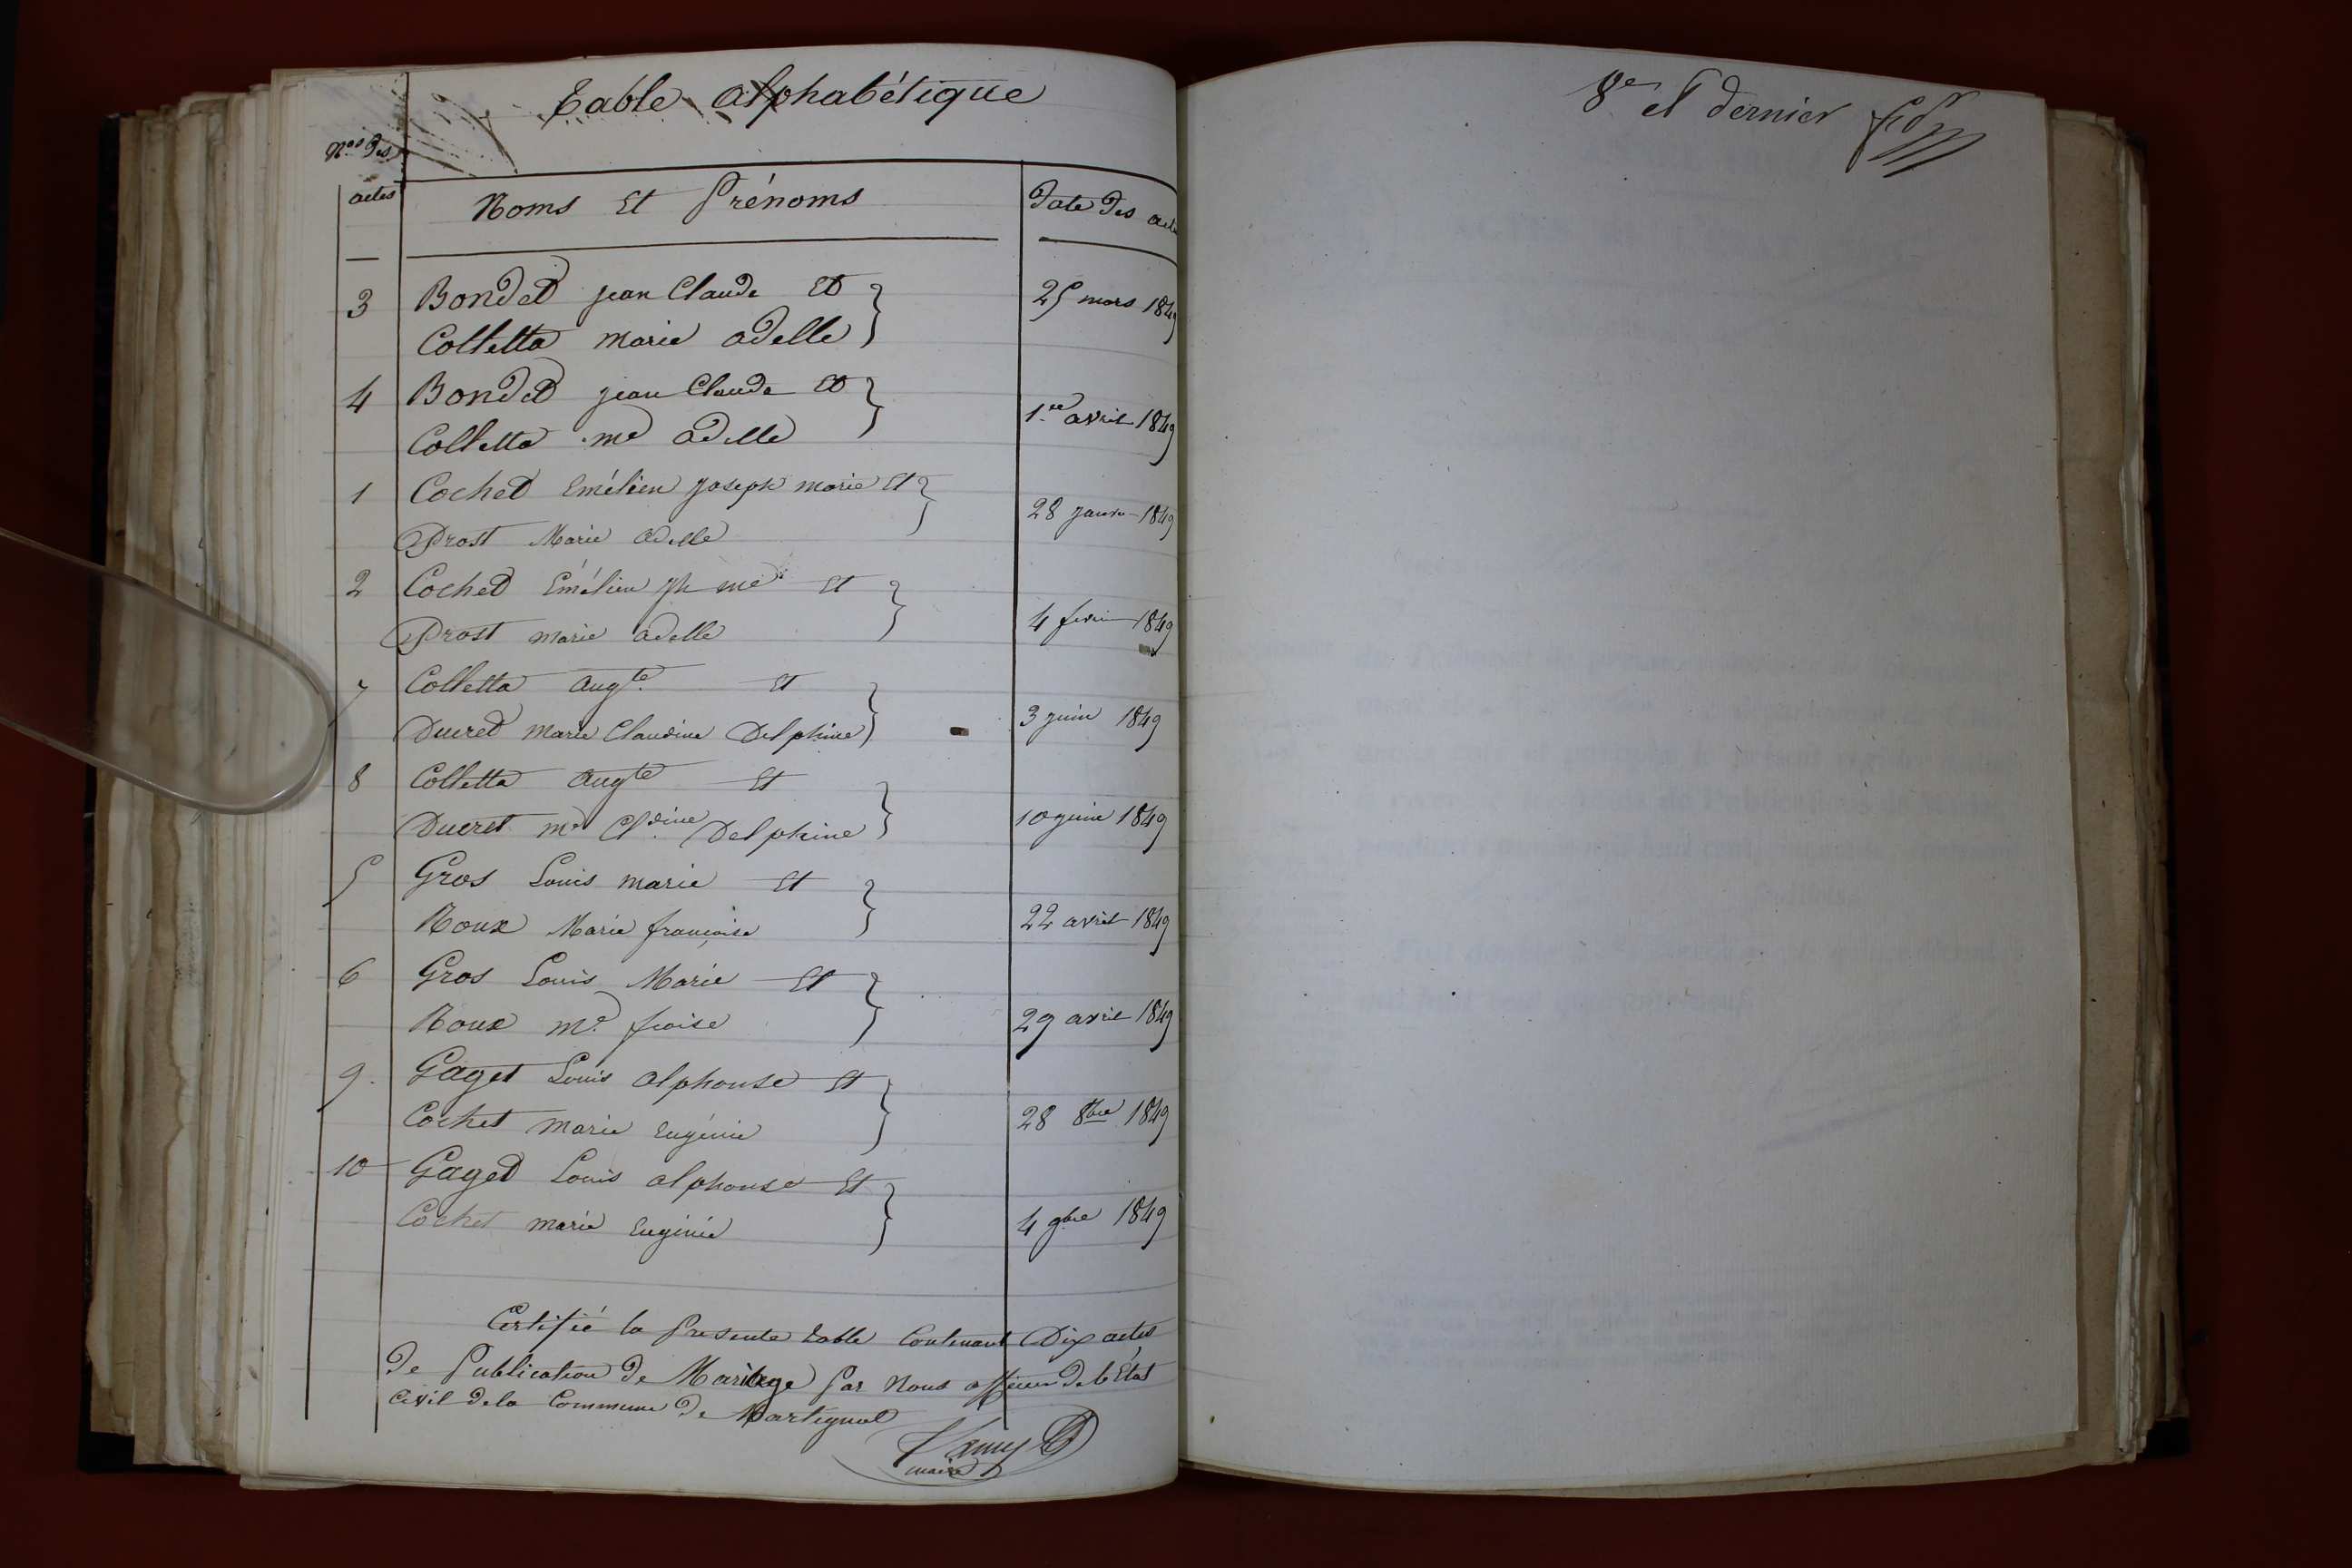 Table alphabétique
Nos des
actes
Noms Et Prénoms
Date des actes
3 Bondet jean Claude Et
Colletta marie adelle
25 mars 1849
4 Bondet jean Claude Et
Colletta me adelle
1er avril 1849
1 Cochet Emélien joseph marie Et
Prost Marie adelle
28 janvr 1849
2 Cochet Emélien jh me Et
Prost marie adelle
4 fevrier 1849
7 Colletta Augte Et
Ducret Marie Claudine Delphine
3 juin 1849
8 Colletta Augte Et
Ducret me Cldine Delphine
10 juin 1849
5 Gros Louis marie Et
Roux Marie françoise
22 avril 1849
6 Gros Louis Marie Et
Roux me froise
29 avril 1849
9. Gaget Louis alphonse Et
Cochet marie Eugénie
28 8bre 1849
10 Gaget Louis alphonse Et
Cochet marie Eugénie
4 9bre 1849
Certifié la presente table Contenant Dix actes
De Publication De Mariage par Nous officier De l'État
Civil De la Commune De Martignat
maire
8e et dernier